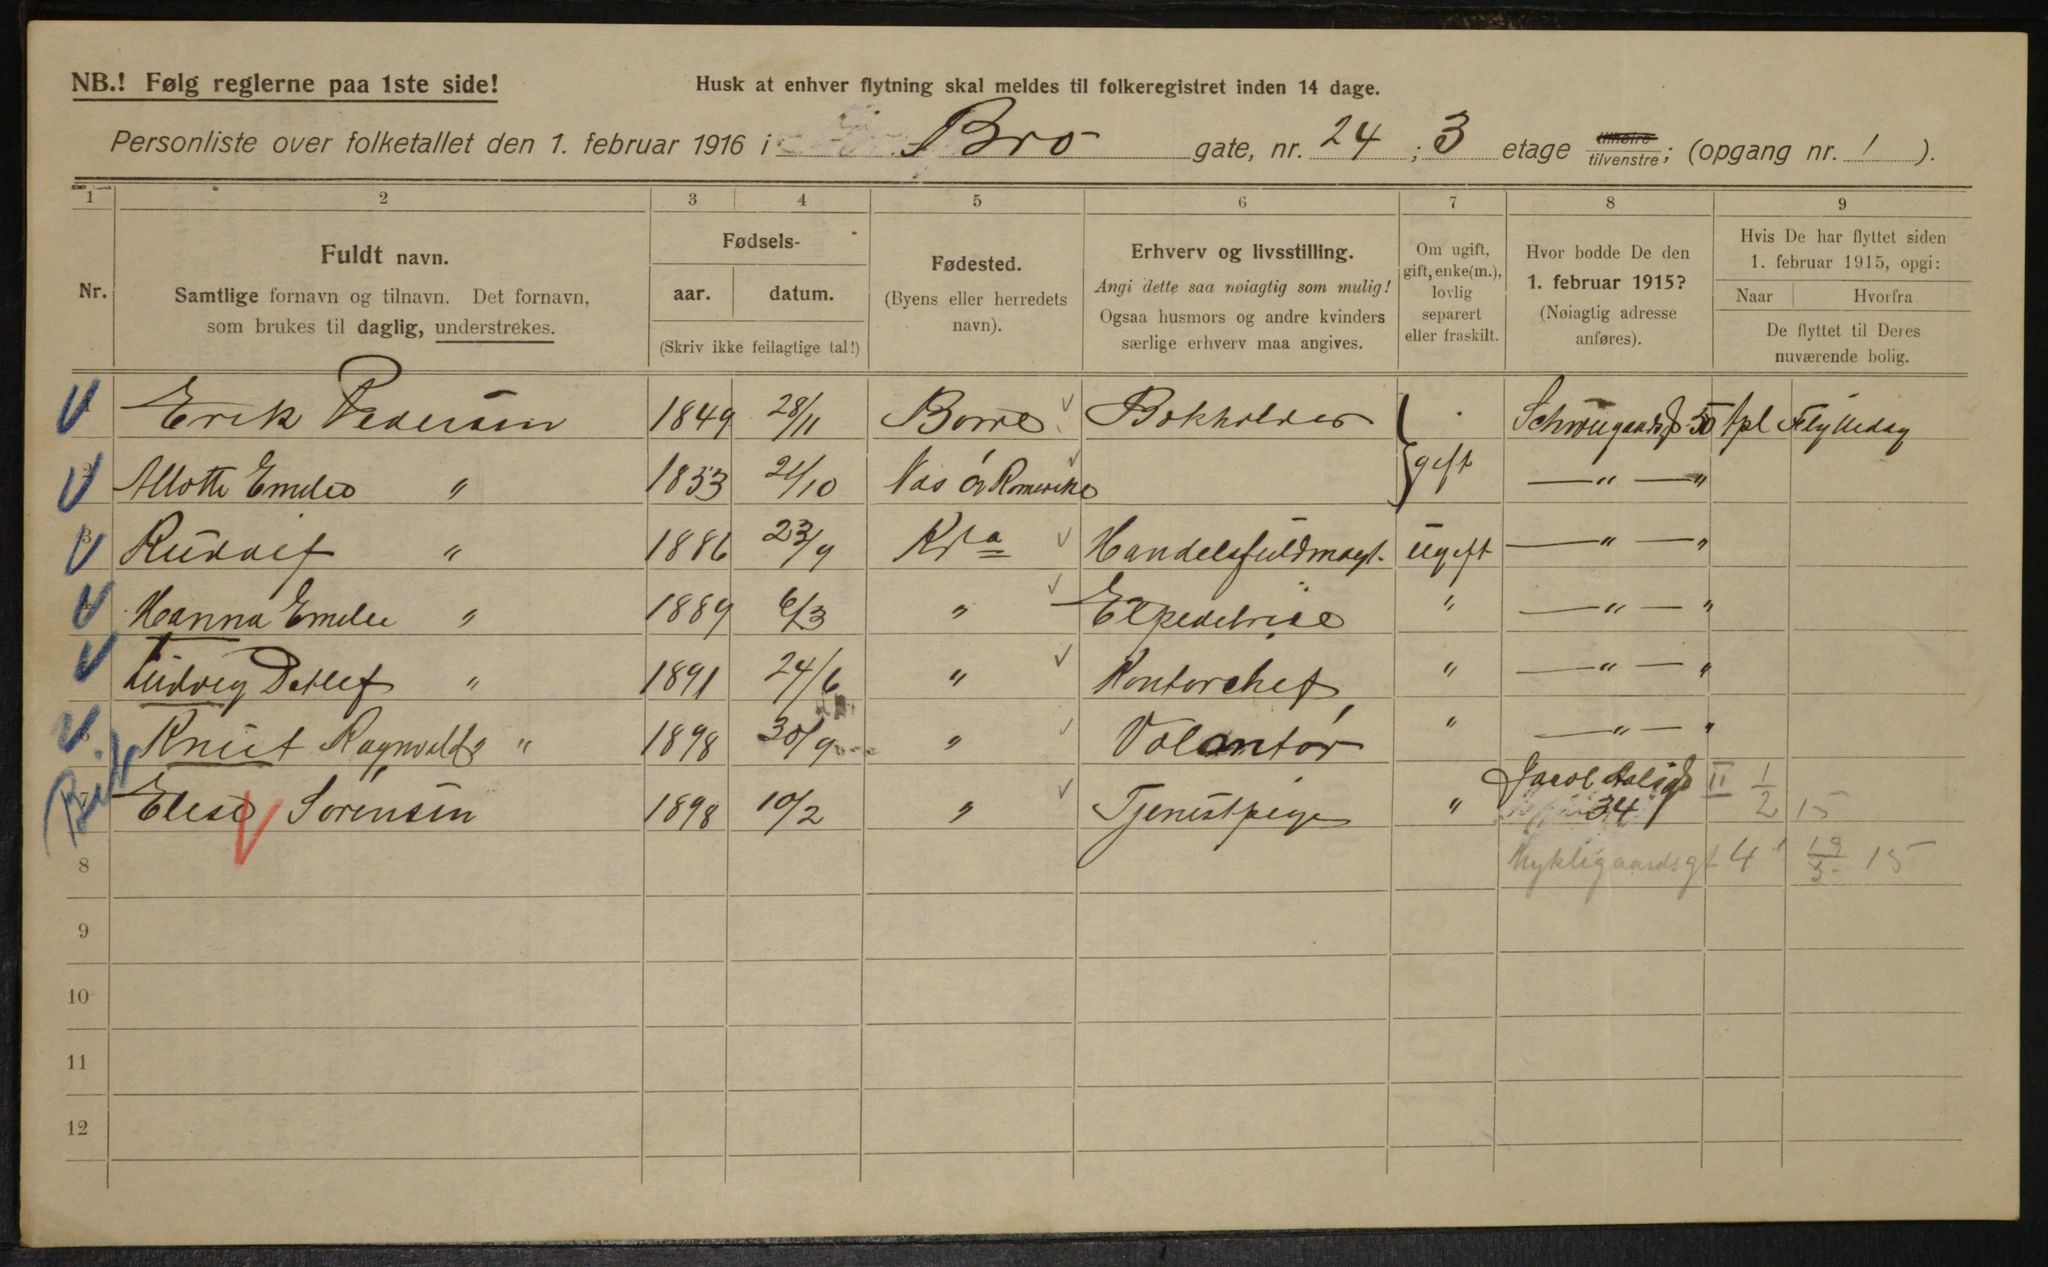 NB.! Følg reglerne paa 1ste side!
Husk at enhver flytning skal meldes til folkeregistret inden 14 dage.
Personliste over folketallet den 1. februar 1916 i Bro gate, nr. 24 ; 3 etage tilhøire/tilvenstre; (opgang nr. 1 ).
1 2 3 4 5 6 7 8 9
Nr.
Fuldt navn.
Samtlige fornavn og tilnavn. Det fornavn,
som brukes til daglig, understrekes.
Fødsels-
aar. datum.
(Skriv ikke feilagtige tal!)
Fødested.
(Byens eller herredets
navn).
Erhverv og livsstilling.
Angi dette saa nøiagtig som mulig!
Ogsaa husmors og andre kvinders
særlige erhverv maa angives.
Om ugift,
gift, enke(m.),
lovlig
separert
eller fraskilt.
Hvor bodde De den
1. februar 1915?
(Nøiagtig adresse
anføres).
Hvis De har flyttet siden
1. februar 1915, opgi:
Naar Hvorfra
De flyttet til Deres
nuværende bolig.
Erik Pedersen 1849 28/11 Borre Bokholder Schweigaardsg 50 Apl Flyttedag
2 Emelie " 1853 21/10 Nes Øv Romerike gift — " — "
3 Rudolf " 1886 23/9 Kr.a Handelsfuldmægt. ugift — " — "
Hanna Emelie " 1889 6/3 " Expeditrise " — " — "
Ludvig Detlef " 1891 24/6 " Kontorchef " — " — "
Knut Ragnvald " 1898 30/9 " Volontør " — " — "
Elise Sörensen 1898 10/2 " Tjenestpige " Jacob Aalsgt II 1/2 15
34
8 gaardsgt 4 19/3 15
9
10
11
12